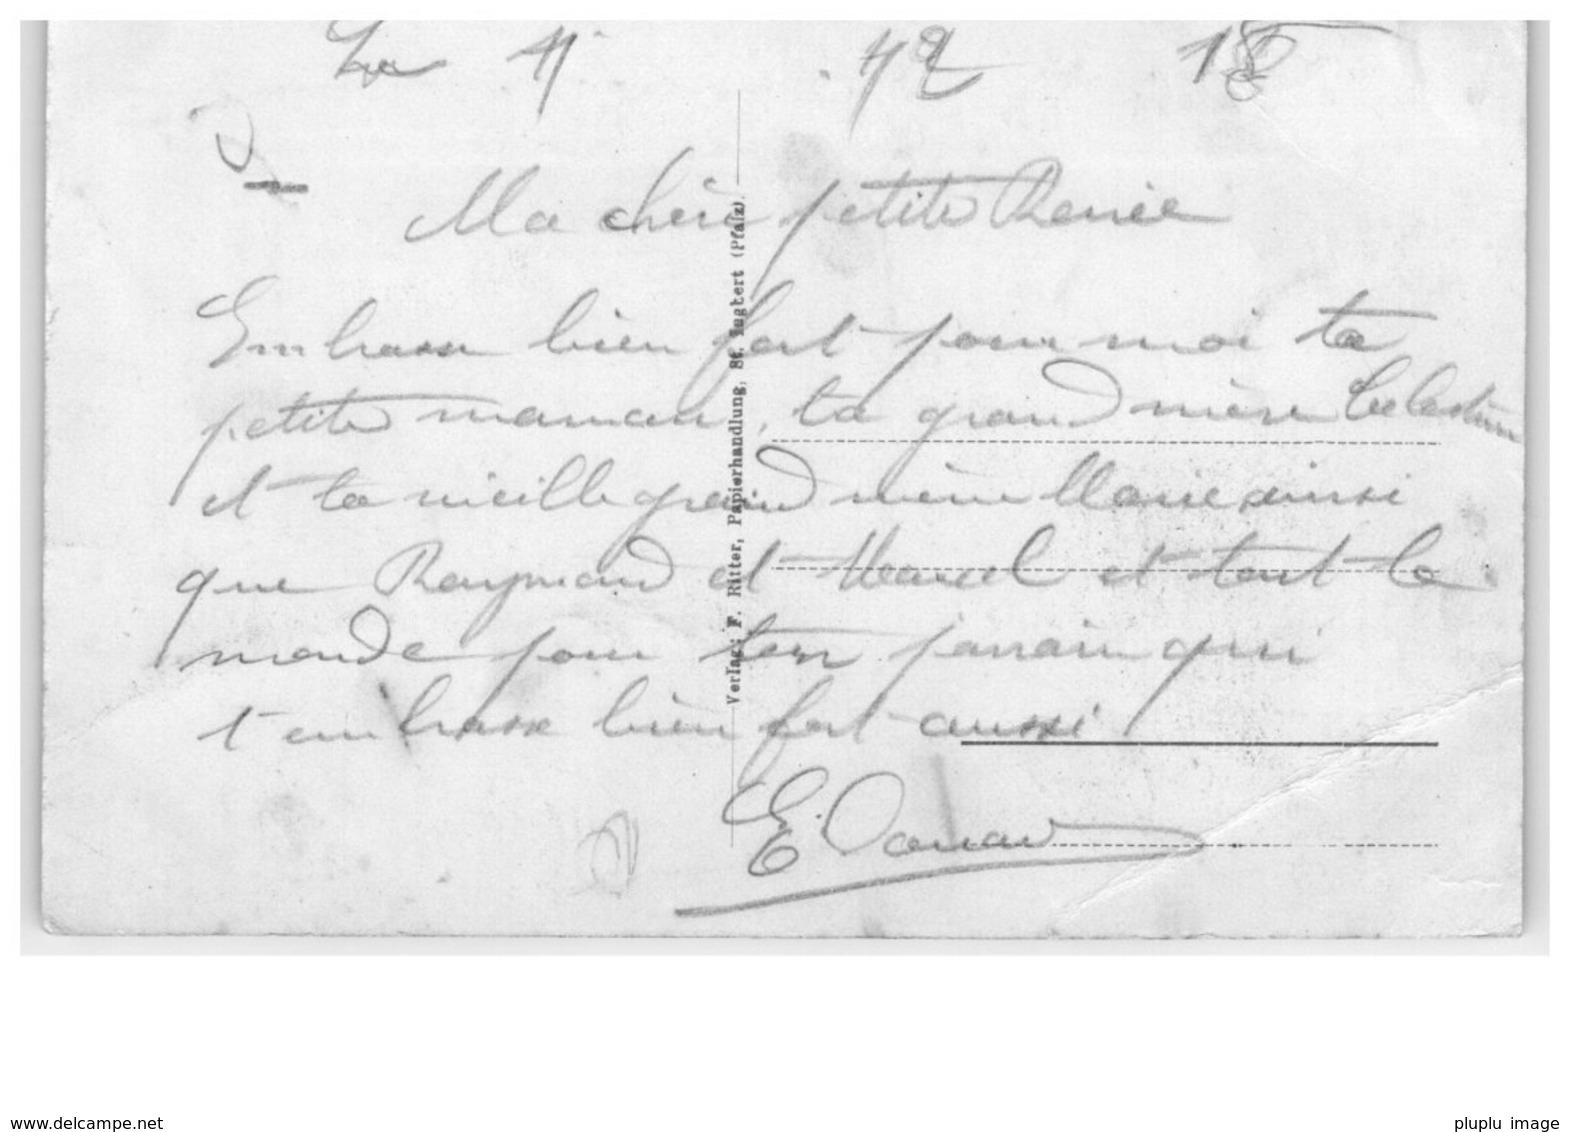 Le 4 12 18
Ma chère petite Renée
Embrasse bien fort pour moi ta
petite maman, ta grand mère Celestine
et ta vieille grand mère Marie ainsi
que Raymond et Marcel et tout le
monde pour ton parrain qui
t'embrasse bien fort aussi
E.
Verlag: F. Ritter, Papierhandlung, St. Ingbert (Pfalz).
www.delcampe.net
pluplu image